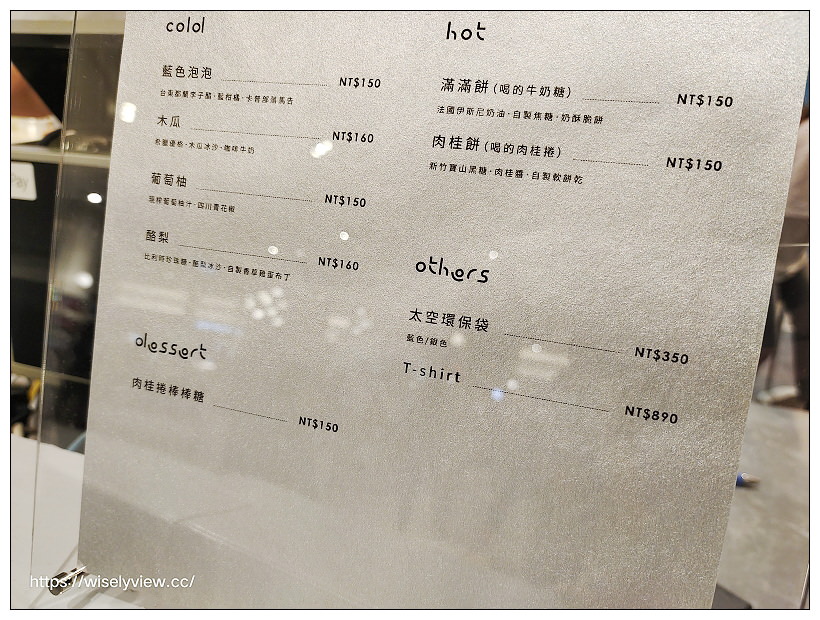 colol
藍色泡泡 NT$150
木瓜 NT$160
希臘優格·木瓜冰沙·咖啡牛奶
葡萄柚 NT$150
現榨葡萄柚汁·四川青花椒
酪梨 NT$160
比利時珍珠糖·酪梨冰沙·自製香草雞蛋布丁
dessert
肉桂捲棒棒糖 NT$150
hot
滿滿餅(喝的牛奶糖) NT$150
法國伊斯尼奶油·自製焦糖·奶酥脆餅
肉桂餅(喝的肉桂捲) NT$150
新竹寶山黑糖·肉桂醬·自製軟餅乾
others
太空環保袋 NT$350
藍色/銀色
T-shirt NT$890
Pay
https://wiselyview.cc/